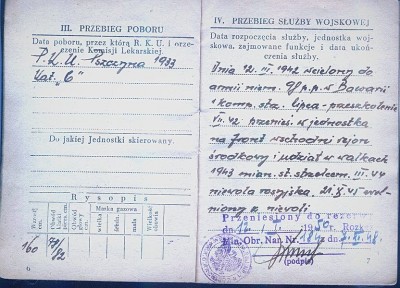 III. PRZEBIEG POBORU
Data poboru, przez którą R. K. U. i orze-
czenie Komisji Lekarskiej.
P.K.U Pszczyna 1933
Kat. "C"
Do jakiej Jednostki skierowany.
Rysopis
Maska gazowa
wielka
średn.
mała
160
92
6
IV. PRZEBIEG SŁUŻBY WOJSKOWEJ
Data rozpoczęcia służby, jednostka woj-
skowa, zajmowane funkcje i data ukoń-
czenia służby.
Dnia 12. III. 1942 wcielony do
armii niem. p.p. w Bawarii
komp. do lipca - przeszkolenie
VII. 42 przenieś. w jednostka
na front wschodni rejon
środkowy i udział w walkach
1943 mian. st. strzelcem. III. 44
niewola rosyjska. 21. X. 45 zwol-
niony z niewoli.
Przeniesiony do rezerwy
dn. 12. I. 1950 r. Rozk.
Min. Obr. Nar. Nr
(podpis)
7